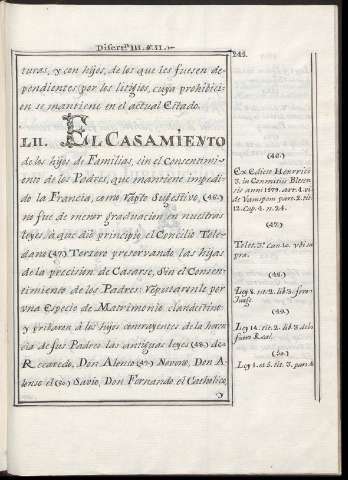 Discrtⁿ III. §. II.
243.
turas, y con hijos, de los que les fuesen de-
pendientes por los litigios, cuya prohibici-
on se mantiene en el actual Estado.
LII. EL CASAMIENTO
de los hijos de Familias, sin el Consentimi-
ento de los Padres, que mantiene impedi-
do la Francia, como Rapto Sugestivo, (46.)
no fue de menor graduacion en nuestras
leyes, a que dió principio el Concilio Tole-
dano (47.) Tercero preservando las hijas
de la precision de Casarse, Sin el Consen-
timiento de los Padres: Reputaronle por
una Especie de Matrimonio clandestino
y privaron à los hijos contrayentes de la haci-
enda de sus Padres las antiguas leyes (48.) de
Recaredo, Don Alonso (49.) Noveno, Don A-
lonso el (50.) Savio, Don Fernando el Catholico,
y
(46.)
Ex Edicto Henrrici
3. in Commitiis Blesen-
sis anni 1579. art. 4. vi-
de Vanspem part. 2. tit.
12. Cap. 4. n. 24.
(47.)
Tolet. 3. can. 10. ubi su-
pra.
(48.)
Ley 8. tit. 2. lib. 3. fro
Juzgo.
(49.)
Ley 14. tit. 2. lib. 3. delo
fuero Real.
(50.)
Ley 1. et 5. tit. 3. part. 4.